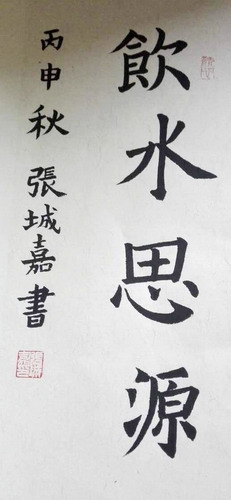 飲水思源
丙申秋 張城嘉書